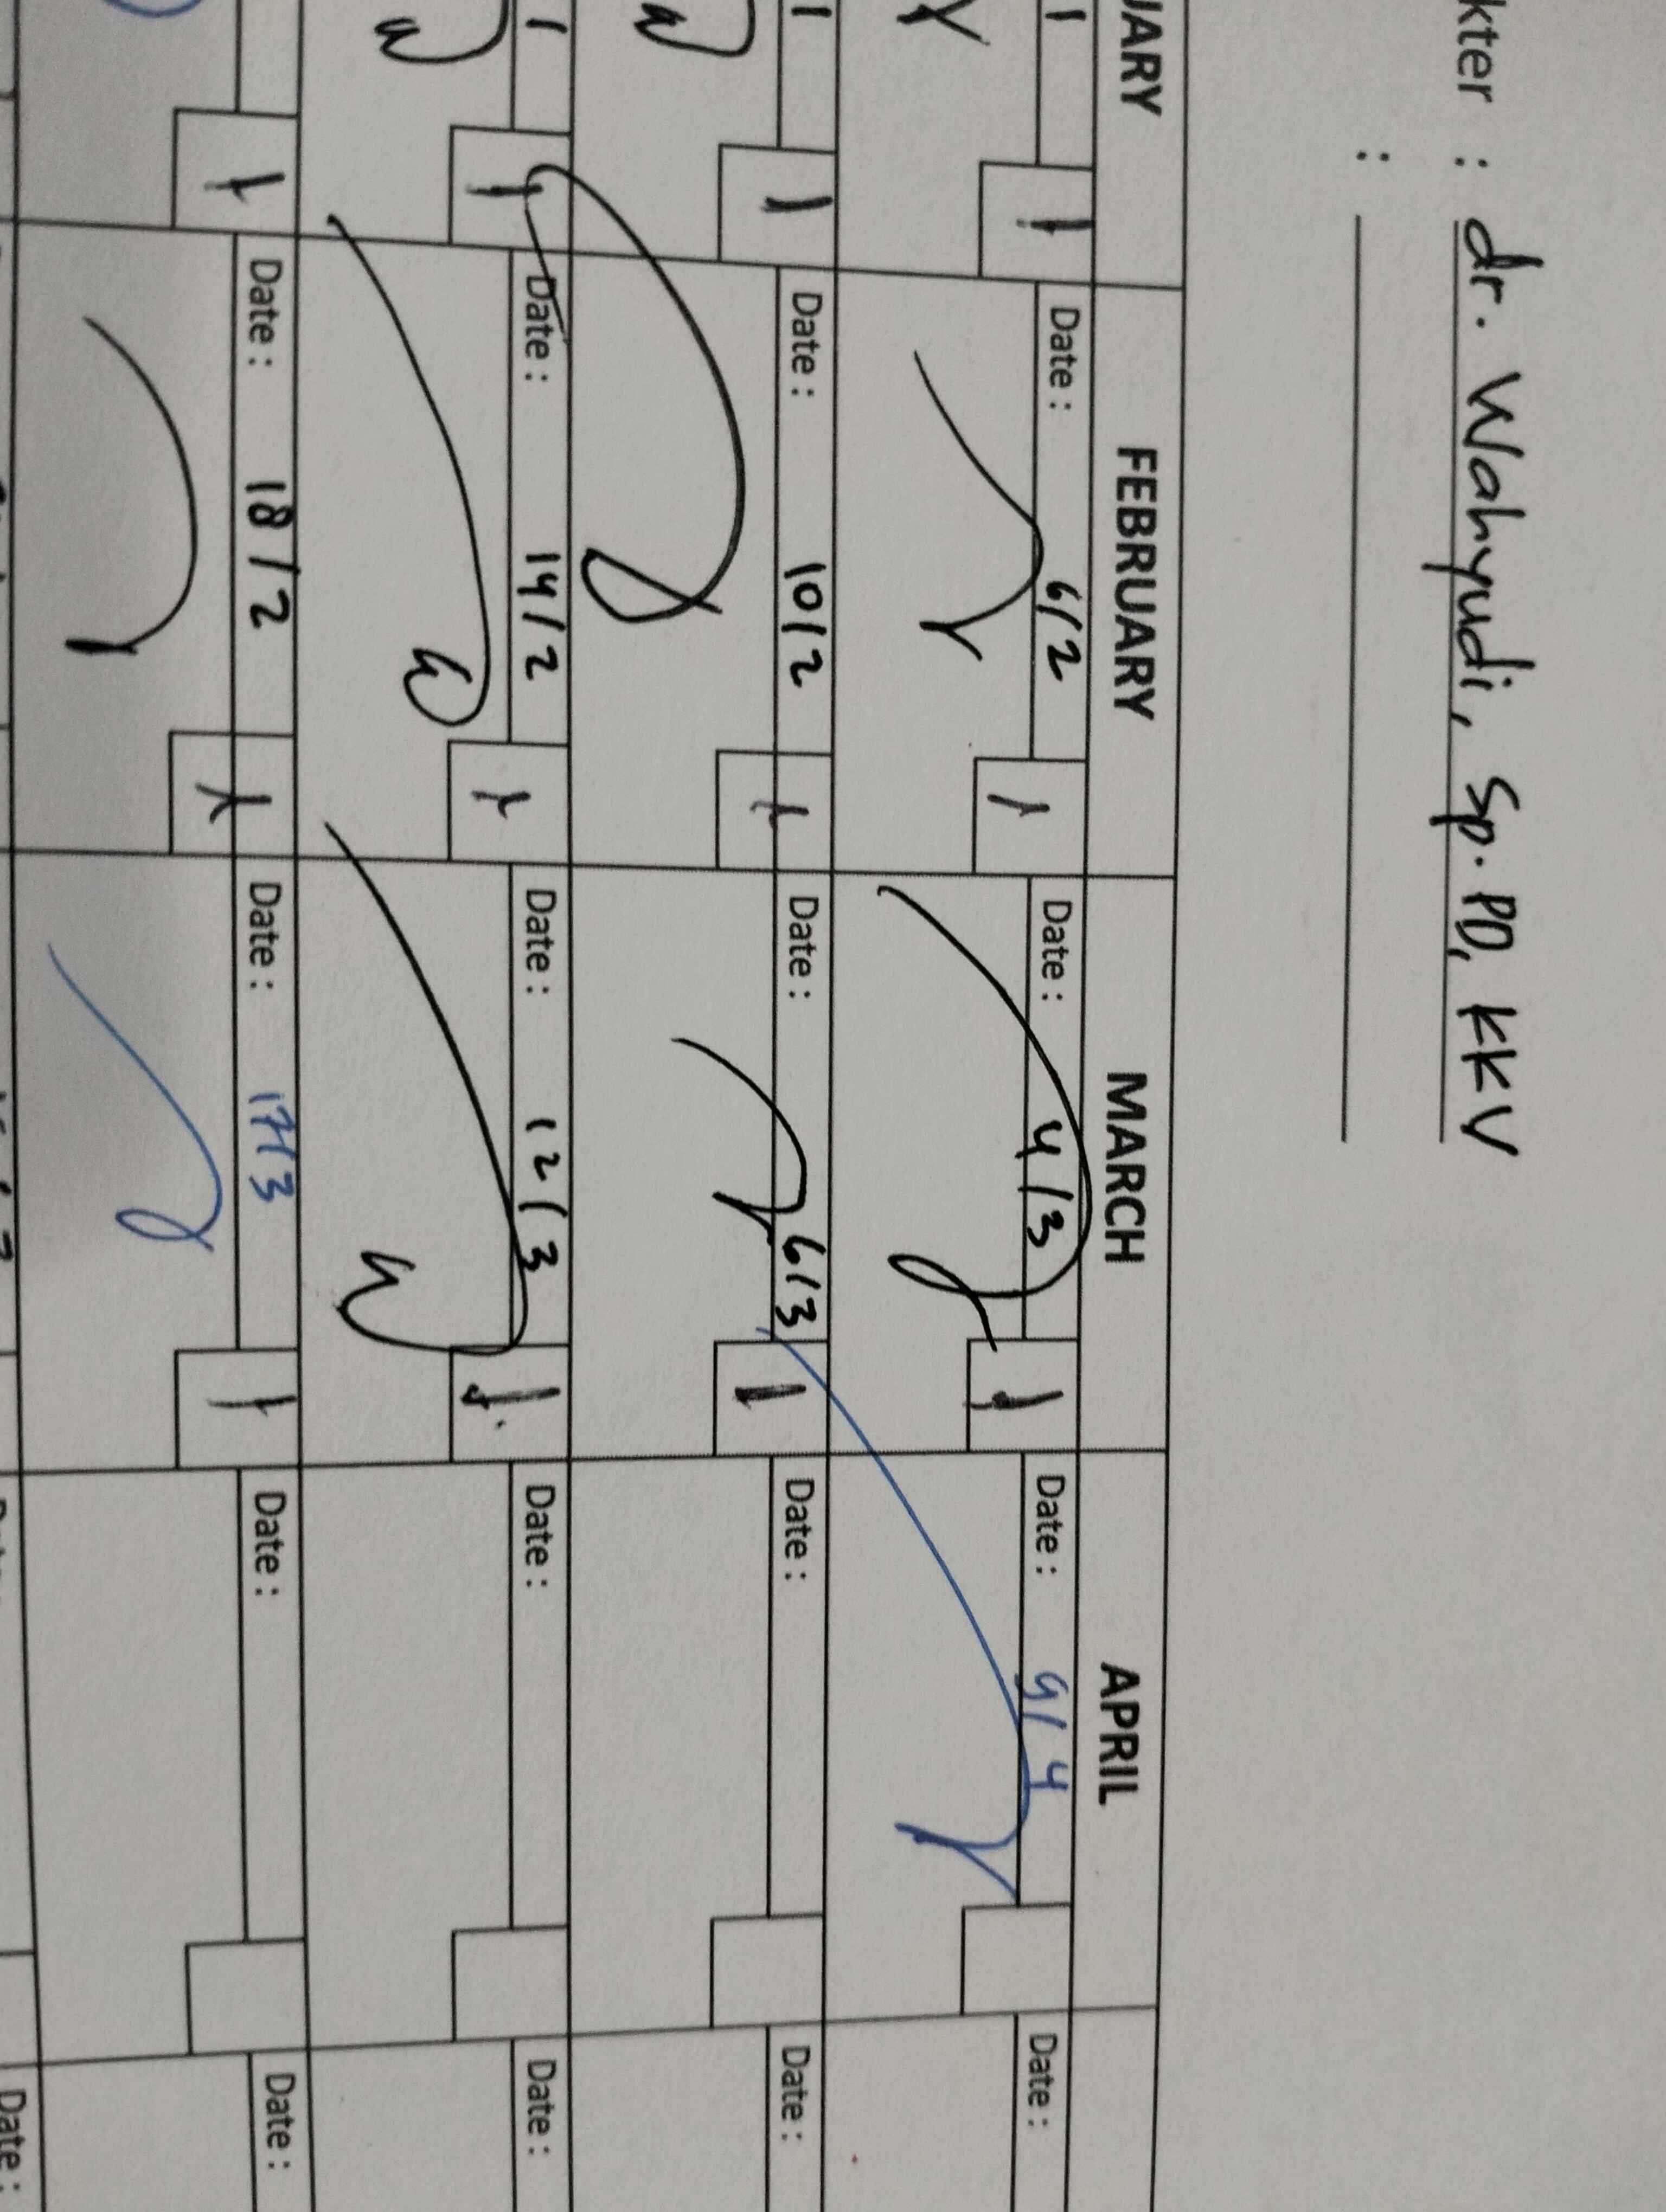 kter : dr. Wahyudi, Sp.PD, KKV
:
UARY FEBRUARY MARCH APRIL
1 Date : 6/2 1 Date : 4/3 1 Date : 9/4 Date :
1 Date : 10/2 1 Date : 6/3 1 Date : Date :
1 Date : 14/2 1 Date : 12/3 1 Date : Date :
1 Date : 18/2 1 Date : 17/3 1 Date : Date :
Date :